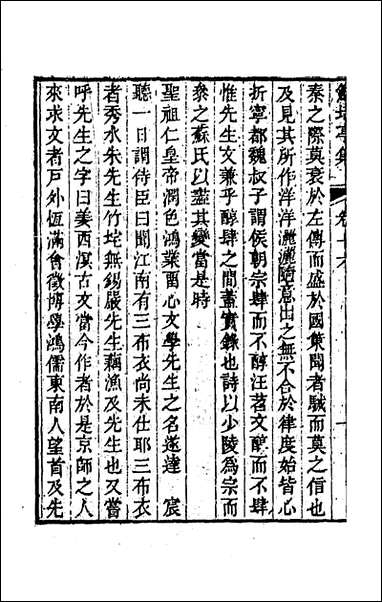 鮚埼亭集 卷十六
秦之際莫衰於左傳而盛於國策聞者駴而莫之信也
及見其所作洋洋灑灑隨意出之無不合於律度始皆心
折寧都魏叔子謂侯朝宗肆而不醇汪苕文醇而不肆
惟先生文兼乎醇肆之間蓋實錄也詩以少陵爲宗而
參之蘇氏以盡其變當是時
聖祖仁皇帝潤色鴻業畱心文學先生之名遂達　宸
聽一日謂侍臣曰聞江南有三布衣尚未仕耶三布衣
者秀水朱先生竹垞無錫嚴先生藕漁及先生也又嘗
呼先生之字曰姜西溟古文當今作者於是京師之人
來求文者戸外恆滿會徵博學鴻儒東南人望首及先